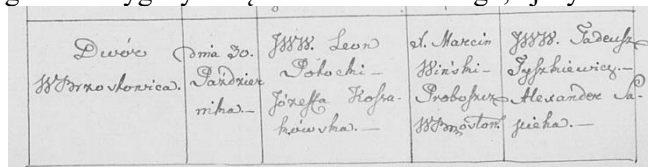 Dwór
W Brzostowica.
dnia 30.
Paździer
nika.—
JWW. Leon
Potocki—
Józeffa Kossa-
kówska.—
X. Marcin
Wiński—
Proboszcz
W Brzostow.
JWW. Tadeusz
Tyszkiewicz.—
Alexander Sa-
pieha.—